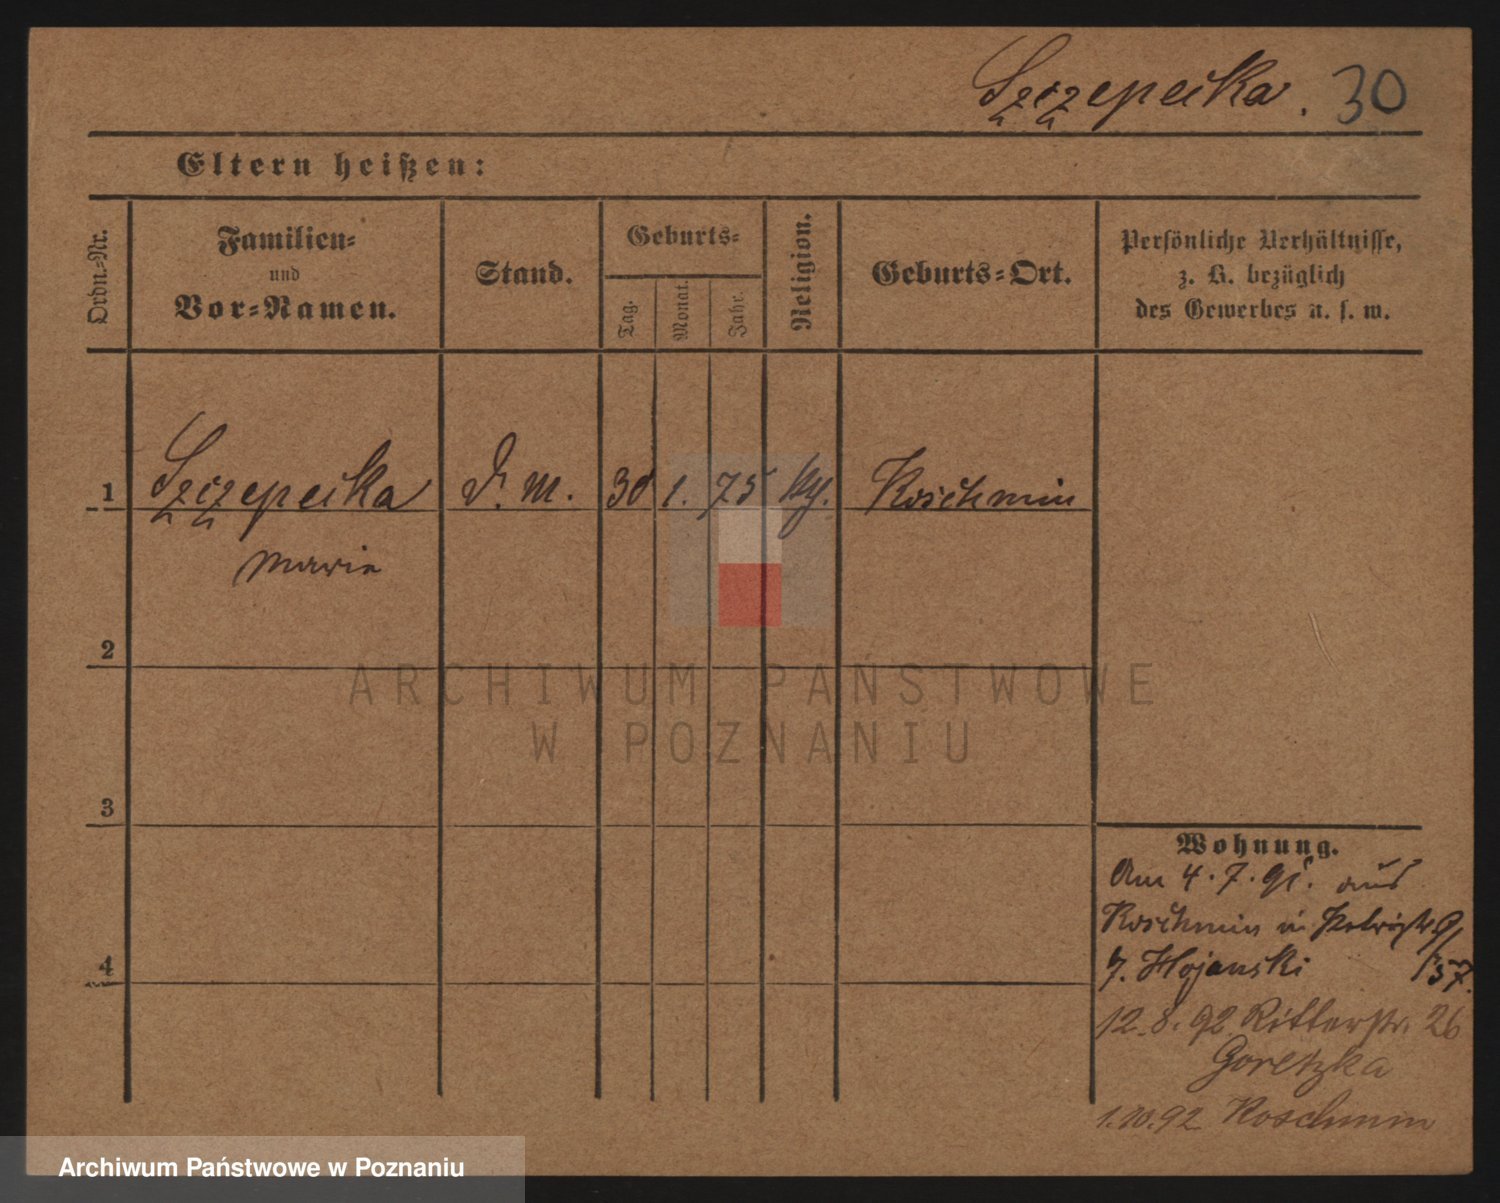 Szczepecka. 30
Eltern heißen:
Ordn.-Nr.
Familien-
und
Vor-Namen.
Stand.
Geburts-
Tag.
Monat.
Jahr.
Religion.
Geburts-Ort.
Persönliche Verhältnisse,
z. B. bezüglich
des Gewerbes u. s. w.
1 Szczepecka D. M. 30 1. 75 Koschmin
Marie
2
3
4
Wohnung.
Am 4. 7. 91. aus
Koschmin in
Hojanski 57.
12. 8. 92 Ritterstr. 26
Goretzka
1. 10. 92 Koschmin
ARCHIWUM PAŃSTWOWE
W POZNANIU
Archiwum Państwowe w Poznaniu